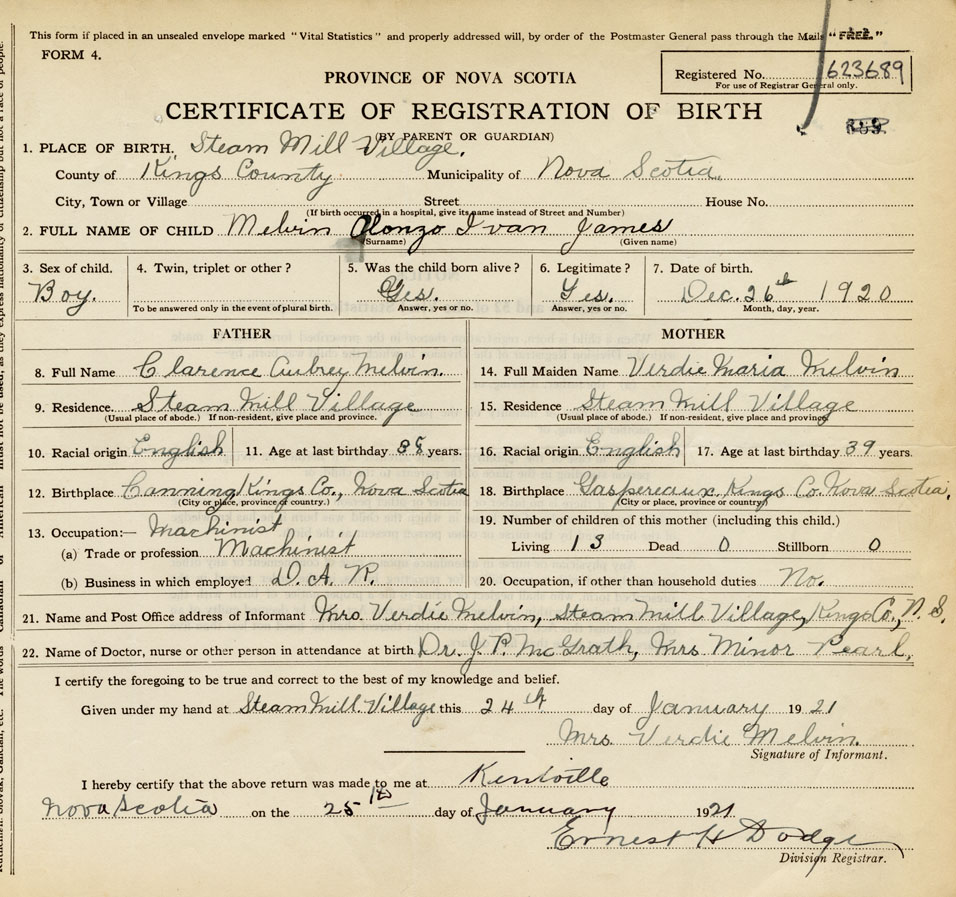 This form if placed in an unsealed envelope marked "Vital Statistics" and properly addressed will, by order of the Postmaster General pass through the Mails "FREE."
FORM 4.
Registered No. 623689
For use of Registrar General only.
PROVINCE OF NOVA SCOTIA
CERTIFICATE OF REGISTRATION OF BIRTH
(BY PARENT OR GUARDIAN)
1. PLACE OF BIRTH. Steam Mill Village.
County of Kings County Municipality of Nova Scotia.
City, Town or Village Street House No.
(If birth occurred in a hospital, give its name instead of Street and Number)
2. FULL NAME OF CHILD Melvin Alonzo Ivan James
(Surname) (Given name)
3. Sex of child. 4. Twin, triplet or other? 5. Was the child born alive? 6. Legitimate? 7. Date of birth.
Boy. Yes. Yes. Dec. 26th 1920
To be answered only in the event of plural birth. Answer, yes or no. Answer, yes or no. Month, day, year.
FATHER
8. Full Name Clarence Aubrey Melvin.
9. Residence. Steam Mill Village
(Usual place of abode.) If non-resident, give place and province.
10. Racial origin English 11. Age at last birthday 38 years.
12. Birthplace Canning, Kings Co., Nova Scotia
(City or place, province or country.)
13. Occupation:— Machinist
(a) Trade or profession Machinist
(b) Business in which employed D. A. R.
MOTHER
14. Full Maiden Name Verdie Maria Melvin
15. Residence Steam Mill Village
(Usual place of abode.) If non-resident, give place and province.
16. Racial origin English 17. Age at last birthday 39 years.
18. Birthplace Gaspereaux, Kings Co. Nova Scotia,
(City or place, province or country)
19. Number of children of this mother (including this child.)
Living 13 Dead 0 Stillborn 0
20. Occupation, if other than household duties No.
21. Name and Post Office address of Informant Mrs. Verdie Melvin, Steam Mill Village, Kings Co., N. S.
22. Name of Doctor, nurse or other person in attendance at birth Dr. J. P. McGrath, Mrs Minor Pearl,
I certify the foregoing to be true and correct to the best of my knowledge and belief.
Given under my hand at Steam Mill Village this 24th day of January 1921
Mrs Verdie Melvin.
Signature of Informant.
I hereby certify that the above return was made to me at Kentville
Nova Scotia on the 25th day of January 1921
Ernest H Dodge
Division Registrar.